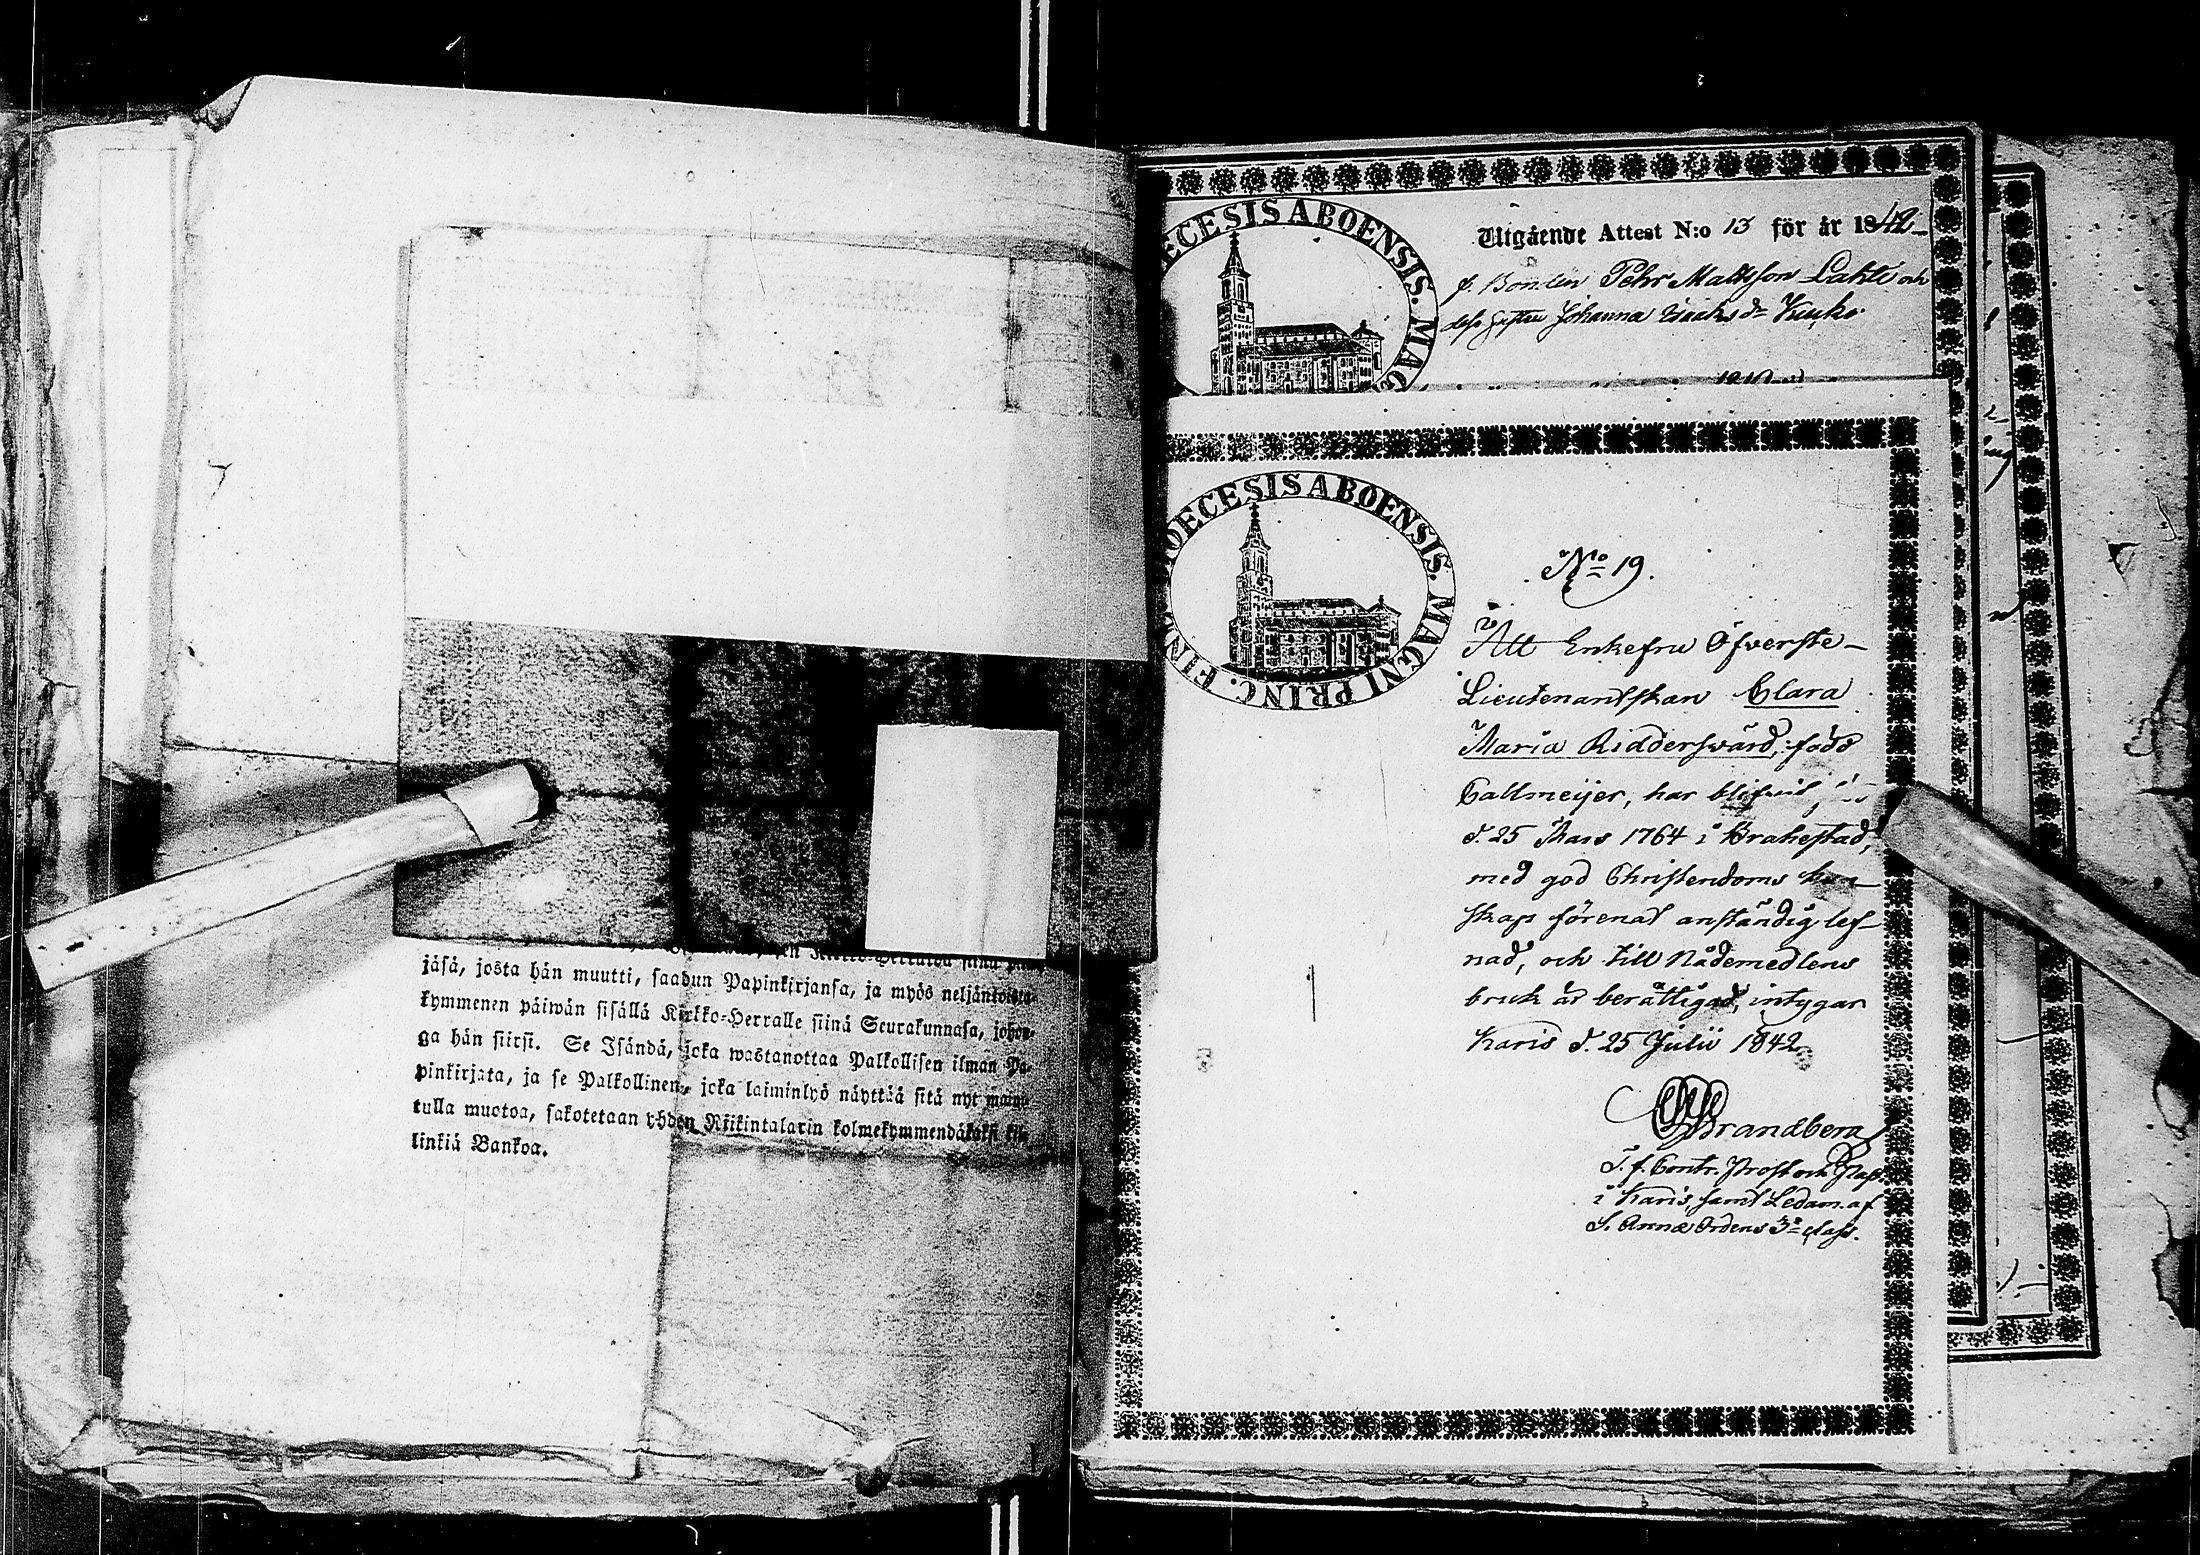 jäsä, josta hän muutti, saadun Papinkirjansa, ja myös neljäntoista-
kymmenen päiwän sisällä Kirkko-Herralle siinä Seurakunnasa, johon-
ga hän siirsi. Se Isändä, joka wastanottaa Palkollisen ilman Pa-
pinkirjata, ja se Palkollinen, joka laiminlyö näyttää sitä nyt mainit-
tulla muotoa, sakotetaan yhden Riikintalarin kolmekymmendäkaksi kil-
linkiä Bankoa.
ECESIS ABOENSIS. MAG
Utgående Attest N:o 13 för år 1842
f. Bonden Pehr Mattsson Lahti och
dess hustru Johanna Isaks dr Kuuko
DIOECESIS ABOENSIS. MAGNI PRINC. FINL
No 19.
Att Enkefru Öfverste-
Lieutenantskan Clara
Maria Ridderswärd, född
Callmeijer, har blifvit
d. 25 Mars 1764 i Brahestad,
med god Christendoms kun-
skap förenat anständig lef-
nad, och till Nådemedlens
bruk är berättigad, intygar
Karis d. 25 Julii 1842
Brandberg
T. f. Contr. Prost och Past.
i Karis, samt Ledam. af
S. Annæ Ordens 3e class.